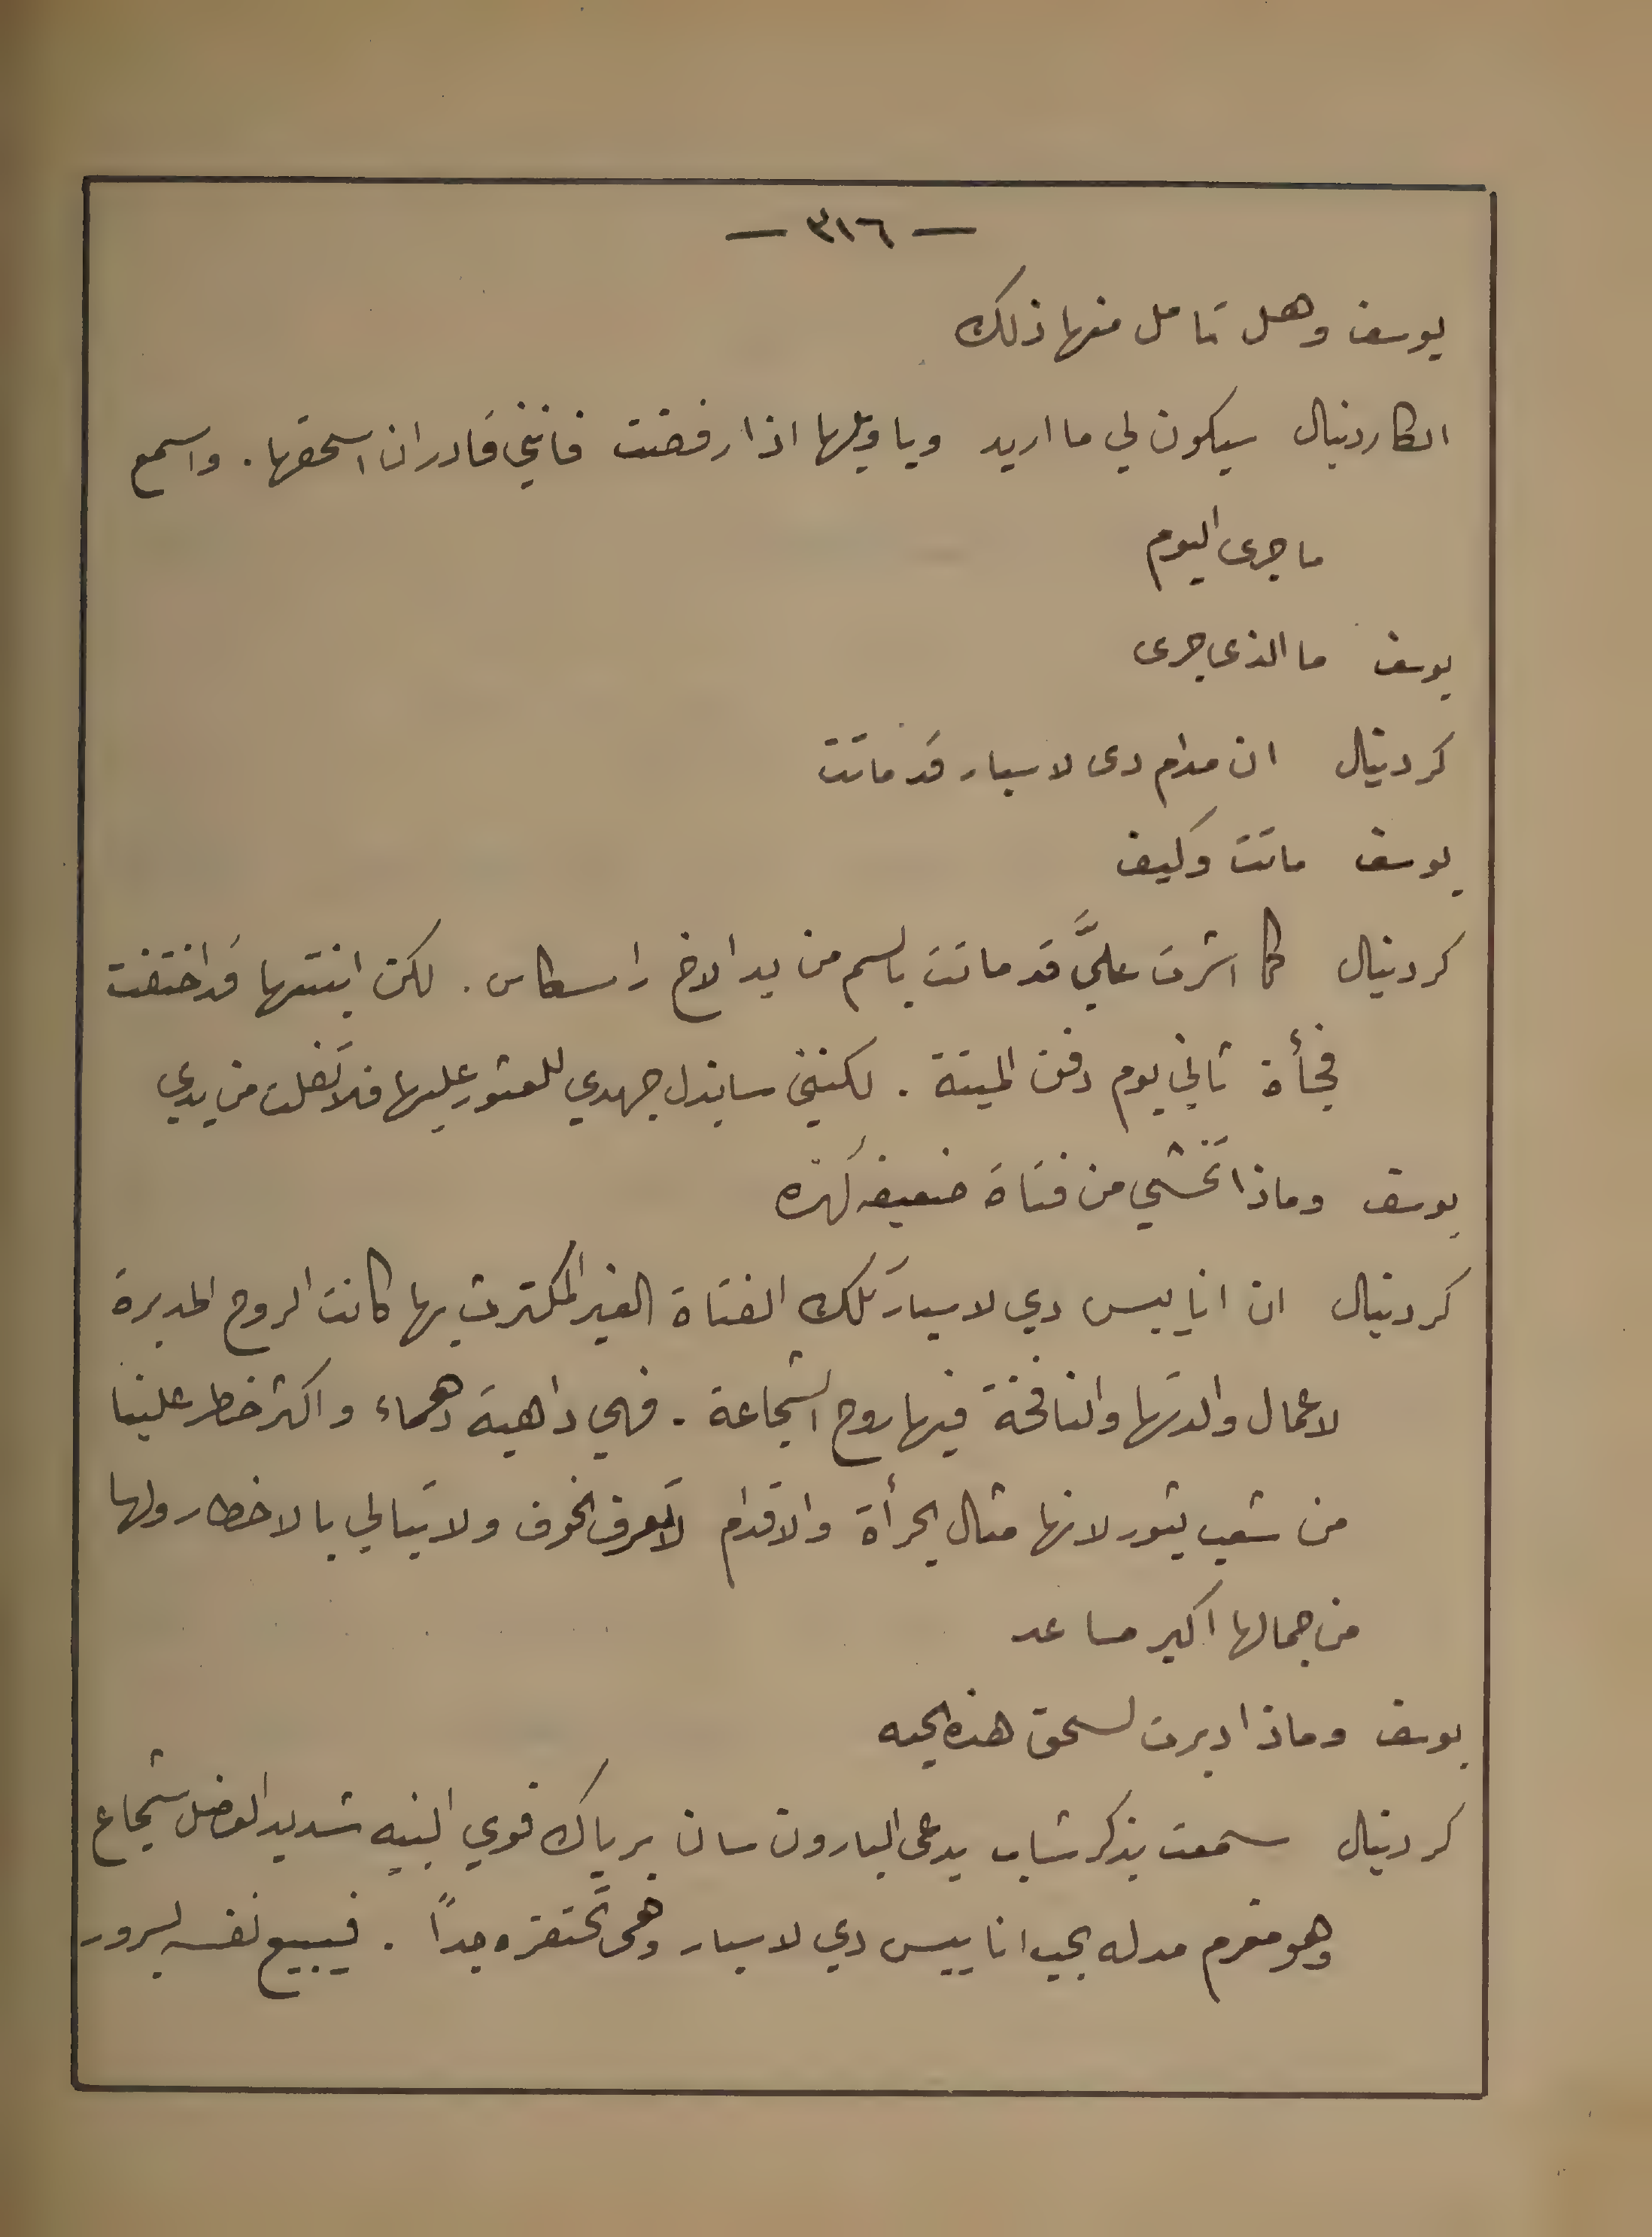 — ٣١٦ —
يوسف وهل تامل منها ذلك
الكاردينال سيكون لي ما اريد ويا ويلها اذا رفضت فانني قادر ان اسحقها . واسمع
ما جرى اليوم
يوسف ما الذي جرى
كردينال ان مدام دي لاسبار قد ماتت
يوسف ماتت وكيف
كردينال كما اشرت عليَّ قد ماتت بالسم من يد الاخ راسكاس . لكن ابنتها قد اختفت
فجأة ثاني يوم دفن الميتة . لكنني سابذل جهدي للعثور عليها فلا تفلت من يدي
يوسف وماذا تخشي من فتاة ضعيفه كهذه
كردينال ان اناييس دي لاسبار تلك الفتاة الغير المكترث بها كانت الروح المدبرة
لاعمال والدتها والنافخة فيها روح الشجاعة . فهي داهية دهماء واكثر خطر علينا
من شعب يثور لانها مثال الجرأة والاقدام لا تعرف الخوف ولا تبالي بالاخطار ولها
من جمالها اكبر مساعد
يوسف وماذا دبرت لسحق هذه الحيه
كردينال سمعت بذكر شاب يدعى البارون سان برياك قوي البنيه شديد العضل شجاع
وهو مغرم مدله بحب اناييس دي لاسبار وهي تحتقره جداً . فيبيع نفسه لسرور